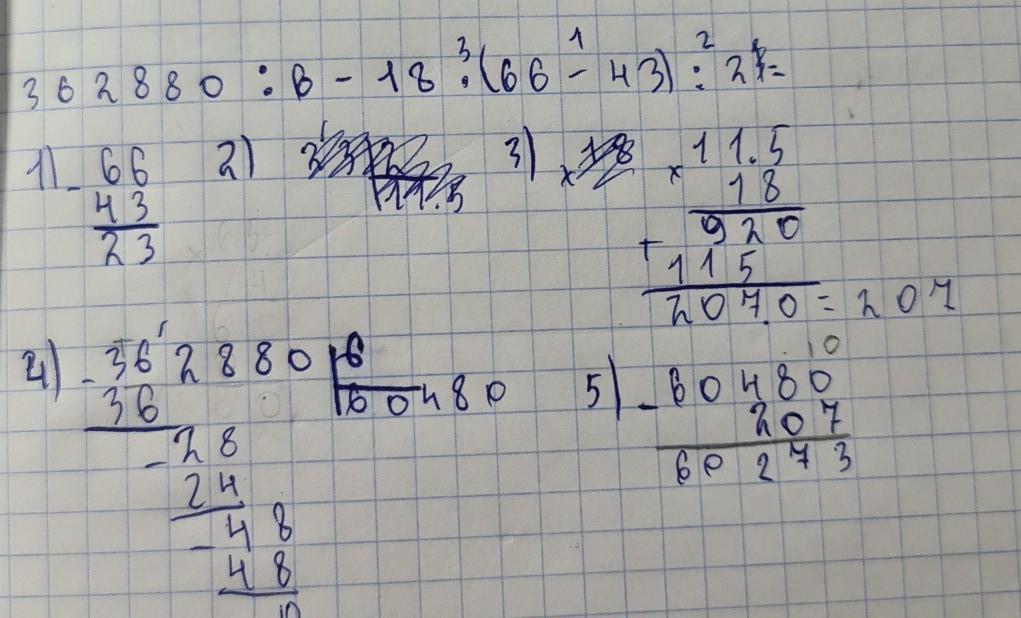 362880 : 6 - 18 · (66 - 43) : 2 =
3 1 2
1) - 66
43
23
2)
11.5
3) × 11.5
18
920
+ 115
207.0 = 207
4) - 362880 | 6
60480
36
- 28
24
- 48
48
0
5) - 60480
10
207
60273